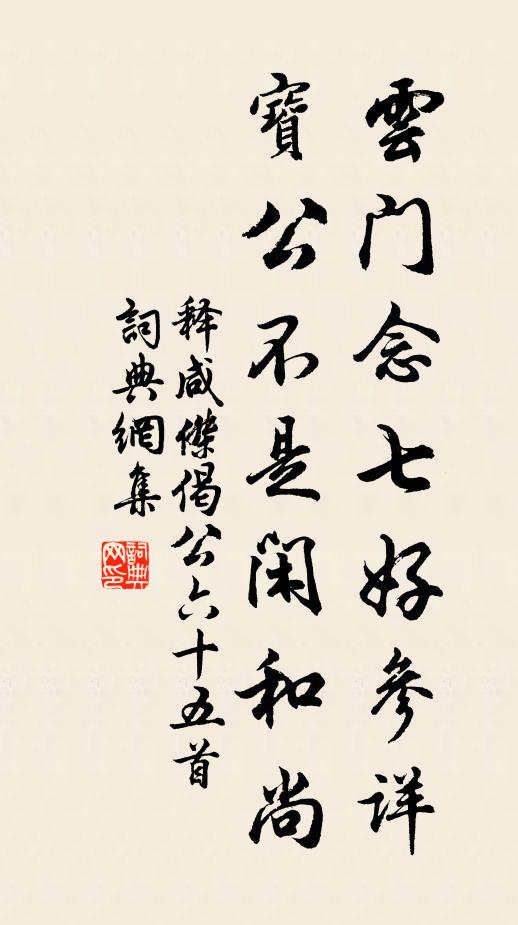 雲门念七好參详
寶公不是闲和尚
释咸傑偈公六十五首
詞典網集
詞典网印